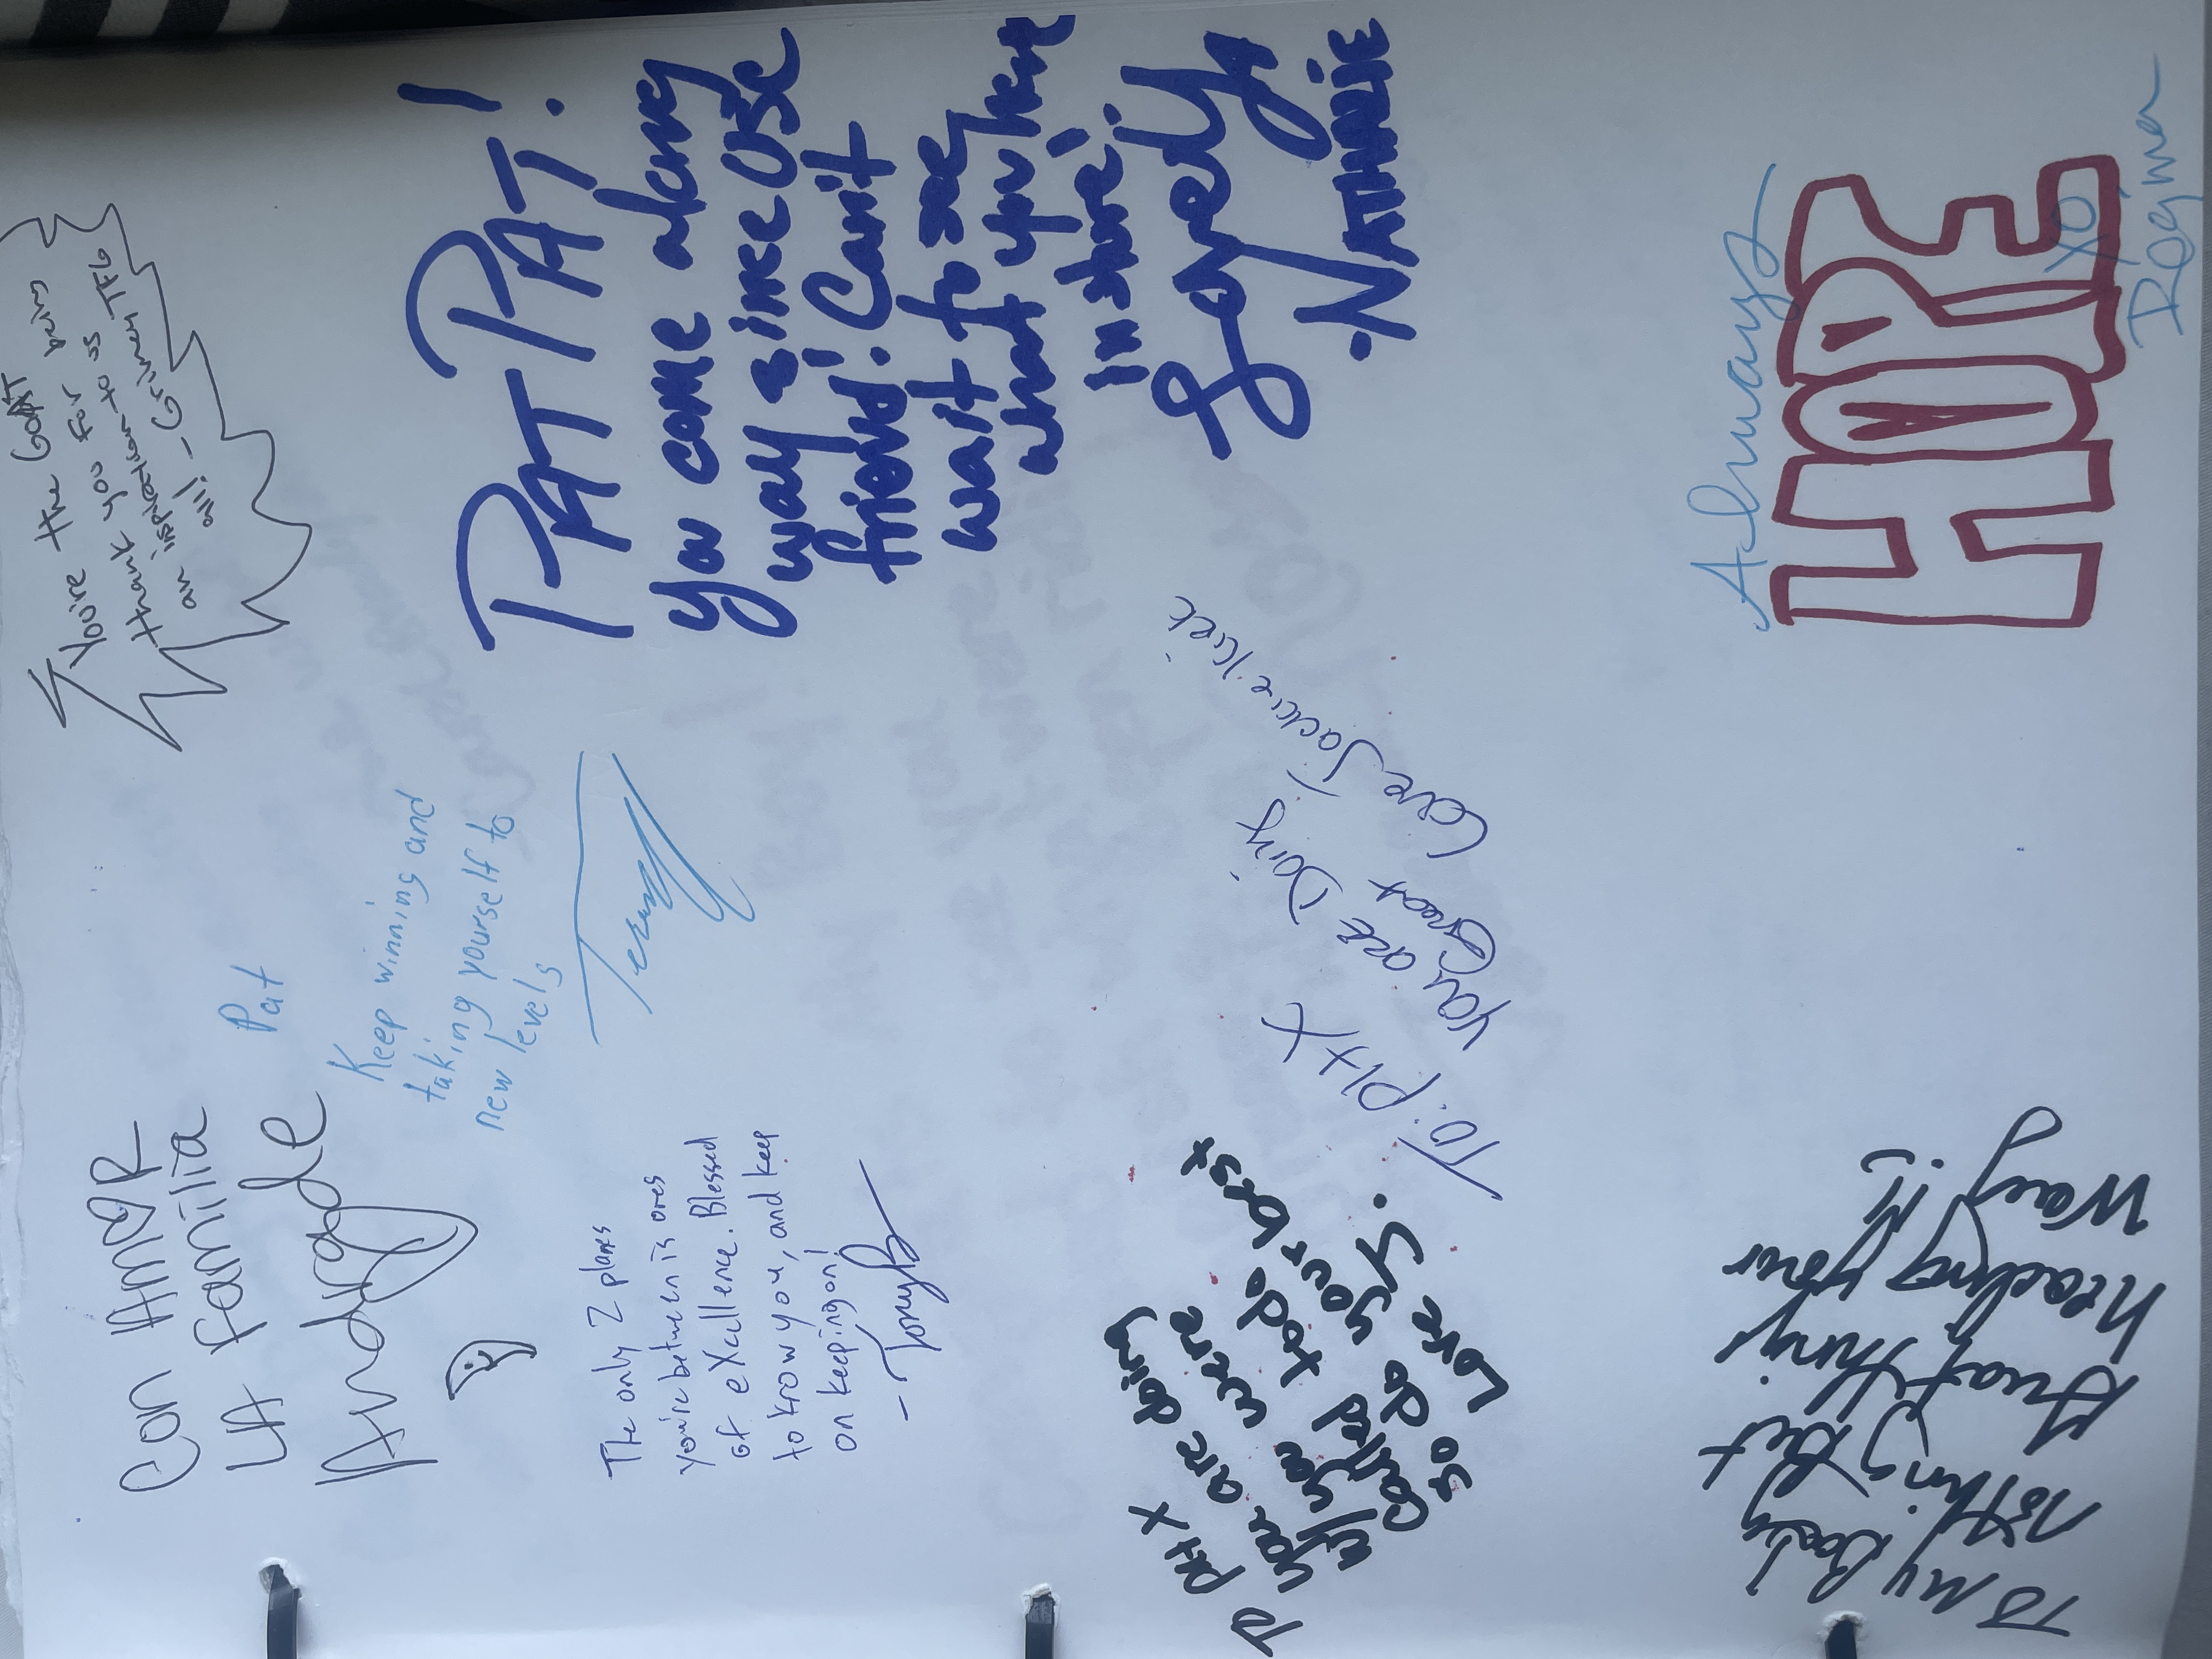 You're the GOAT
thank you for being
an inspiration to us TFG
all! -
Con Amor
LA Familia
Andrade
Pat
Keep winning and
taking yourself to
new levels
The only 2 planes
you're between is ones
of eXcellence. Blessed
to know you, and keep
on keeping on!
- Tony B
PAT PAT!
You come along
way since USC
friend! Can't
wait to see
what you have
in store!
Lovely
- NATHALIE
To: PHX
you are Doing
Great
Love Jackie
TO PHX
you are doing
what you were
Called to do
so do your best
Love
To My Baby
nothing But
Great things
heading your
Way
Always
HOPE
XO
Regina